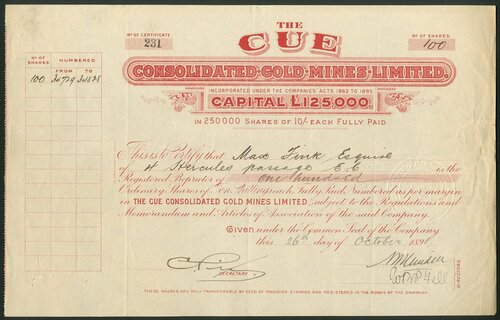 THE
CUE
CONSOLIDATED·GOLD·MINES·LIMITED.
INCORPORATED UNDER THE COMPANIES ACTS 1862 TO 1893.
CAPITAL £125,000.
IN 250000 SHARES OF 10/- EACH FULLY PAID
Nº OF CERTIFICATE.
231
Nº OF SHARES
100
Nº OF SHARES
NUMBERED
FROM TO
100
This is to Certify that Max Fink Esquire
of 4 Hercules passage E.C is the
Registered Proprietor of one hundred
Ordinary Shares of Ten Shillings each, Fully Paid, Numbered as per margin
in THE CUE CONSOLIDATED GOLD MINES LIMITED, subject to the Regulations and
Memorandum and Articles of Association of the said Company.
Given under the Common Seal of the Company
this 26th day of October 189
SECRETARY
DIRECTORS
THESE SHARES ARE ONLY TRANSFERABLE BY DEED OF TRANSFER STAMPED AND REGISTERED IN THE BOOKS OF THE COMPANY